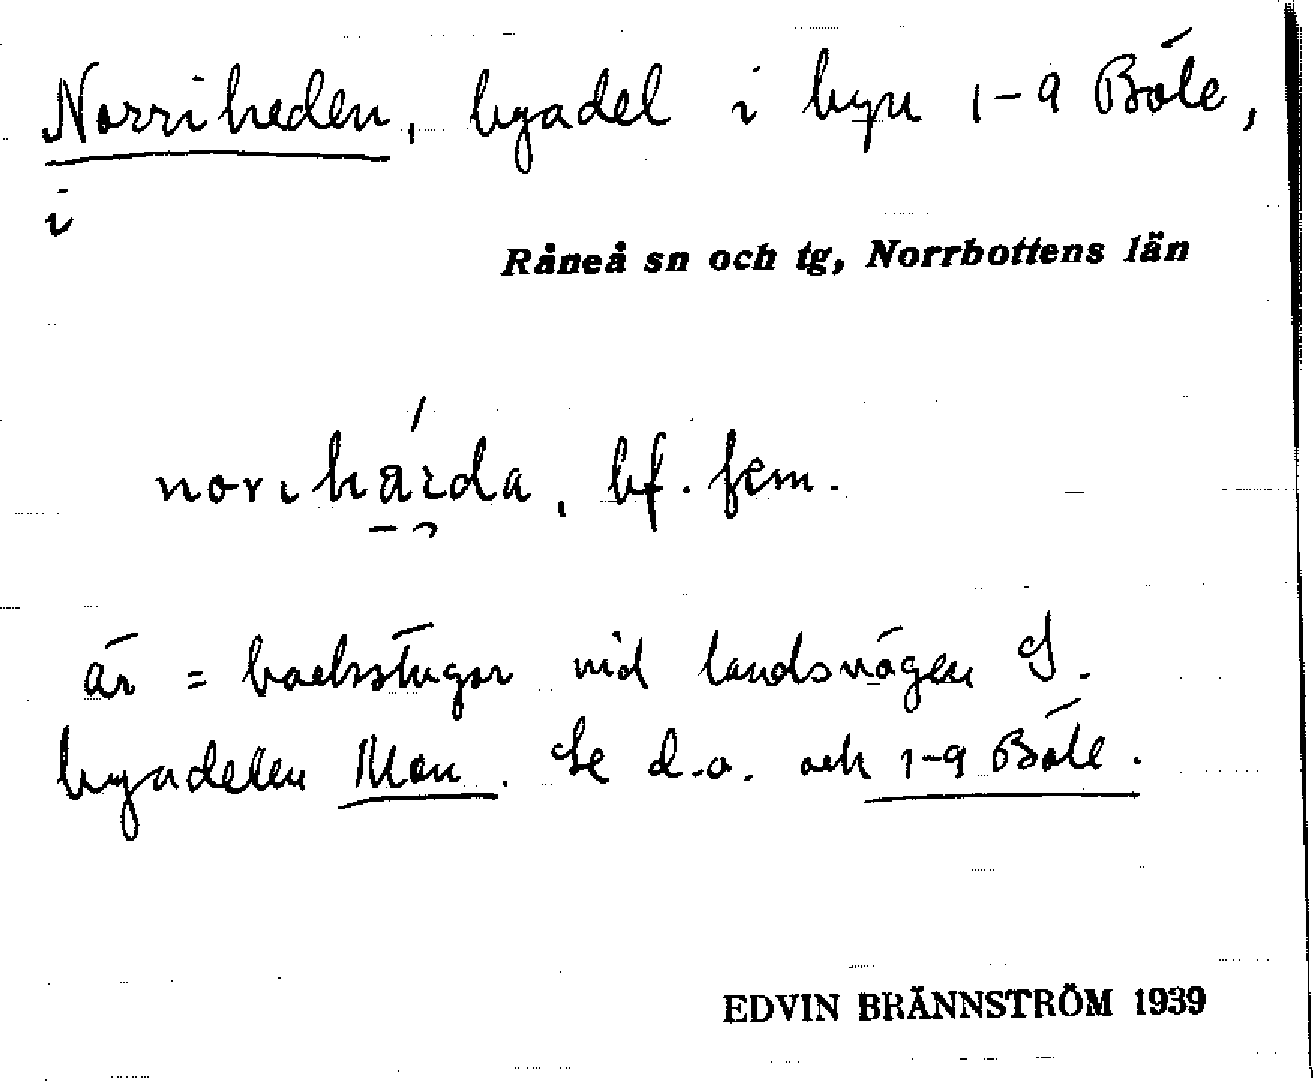 Norriheden, byadel i byn 1-9 Böle,
i
Råneå sn och tg, Norrbottens län
bf. fem.
är = backstugor vid landsvägen S.
byadelen Mon. Se d.o. och 1-9 Böle.
EDVIN BRÄNNSTRÖM 1939